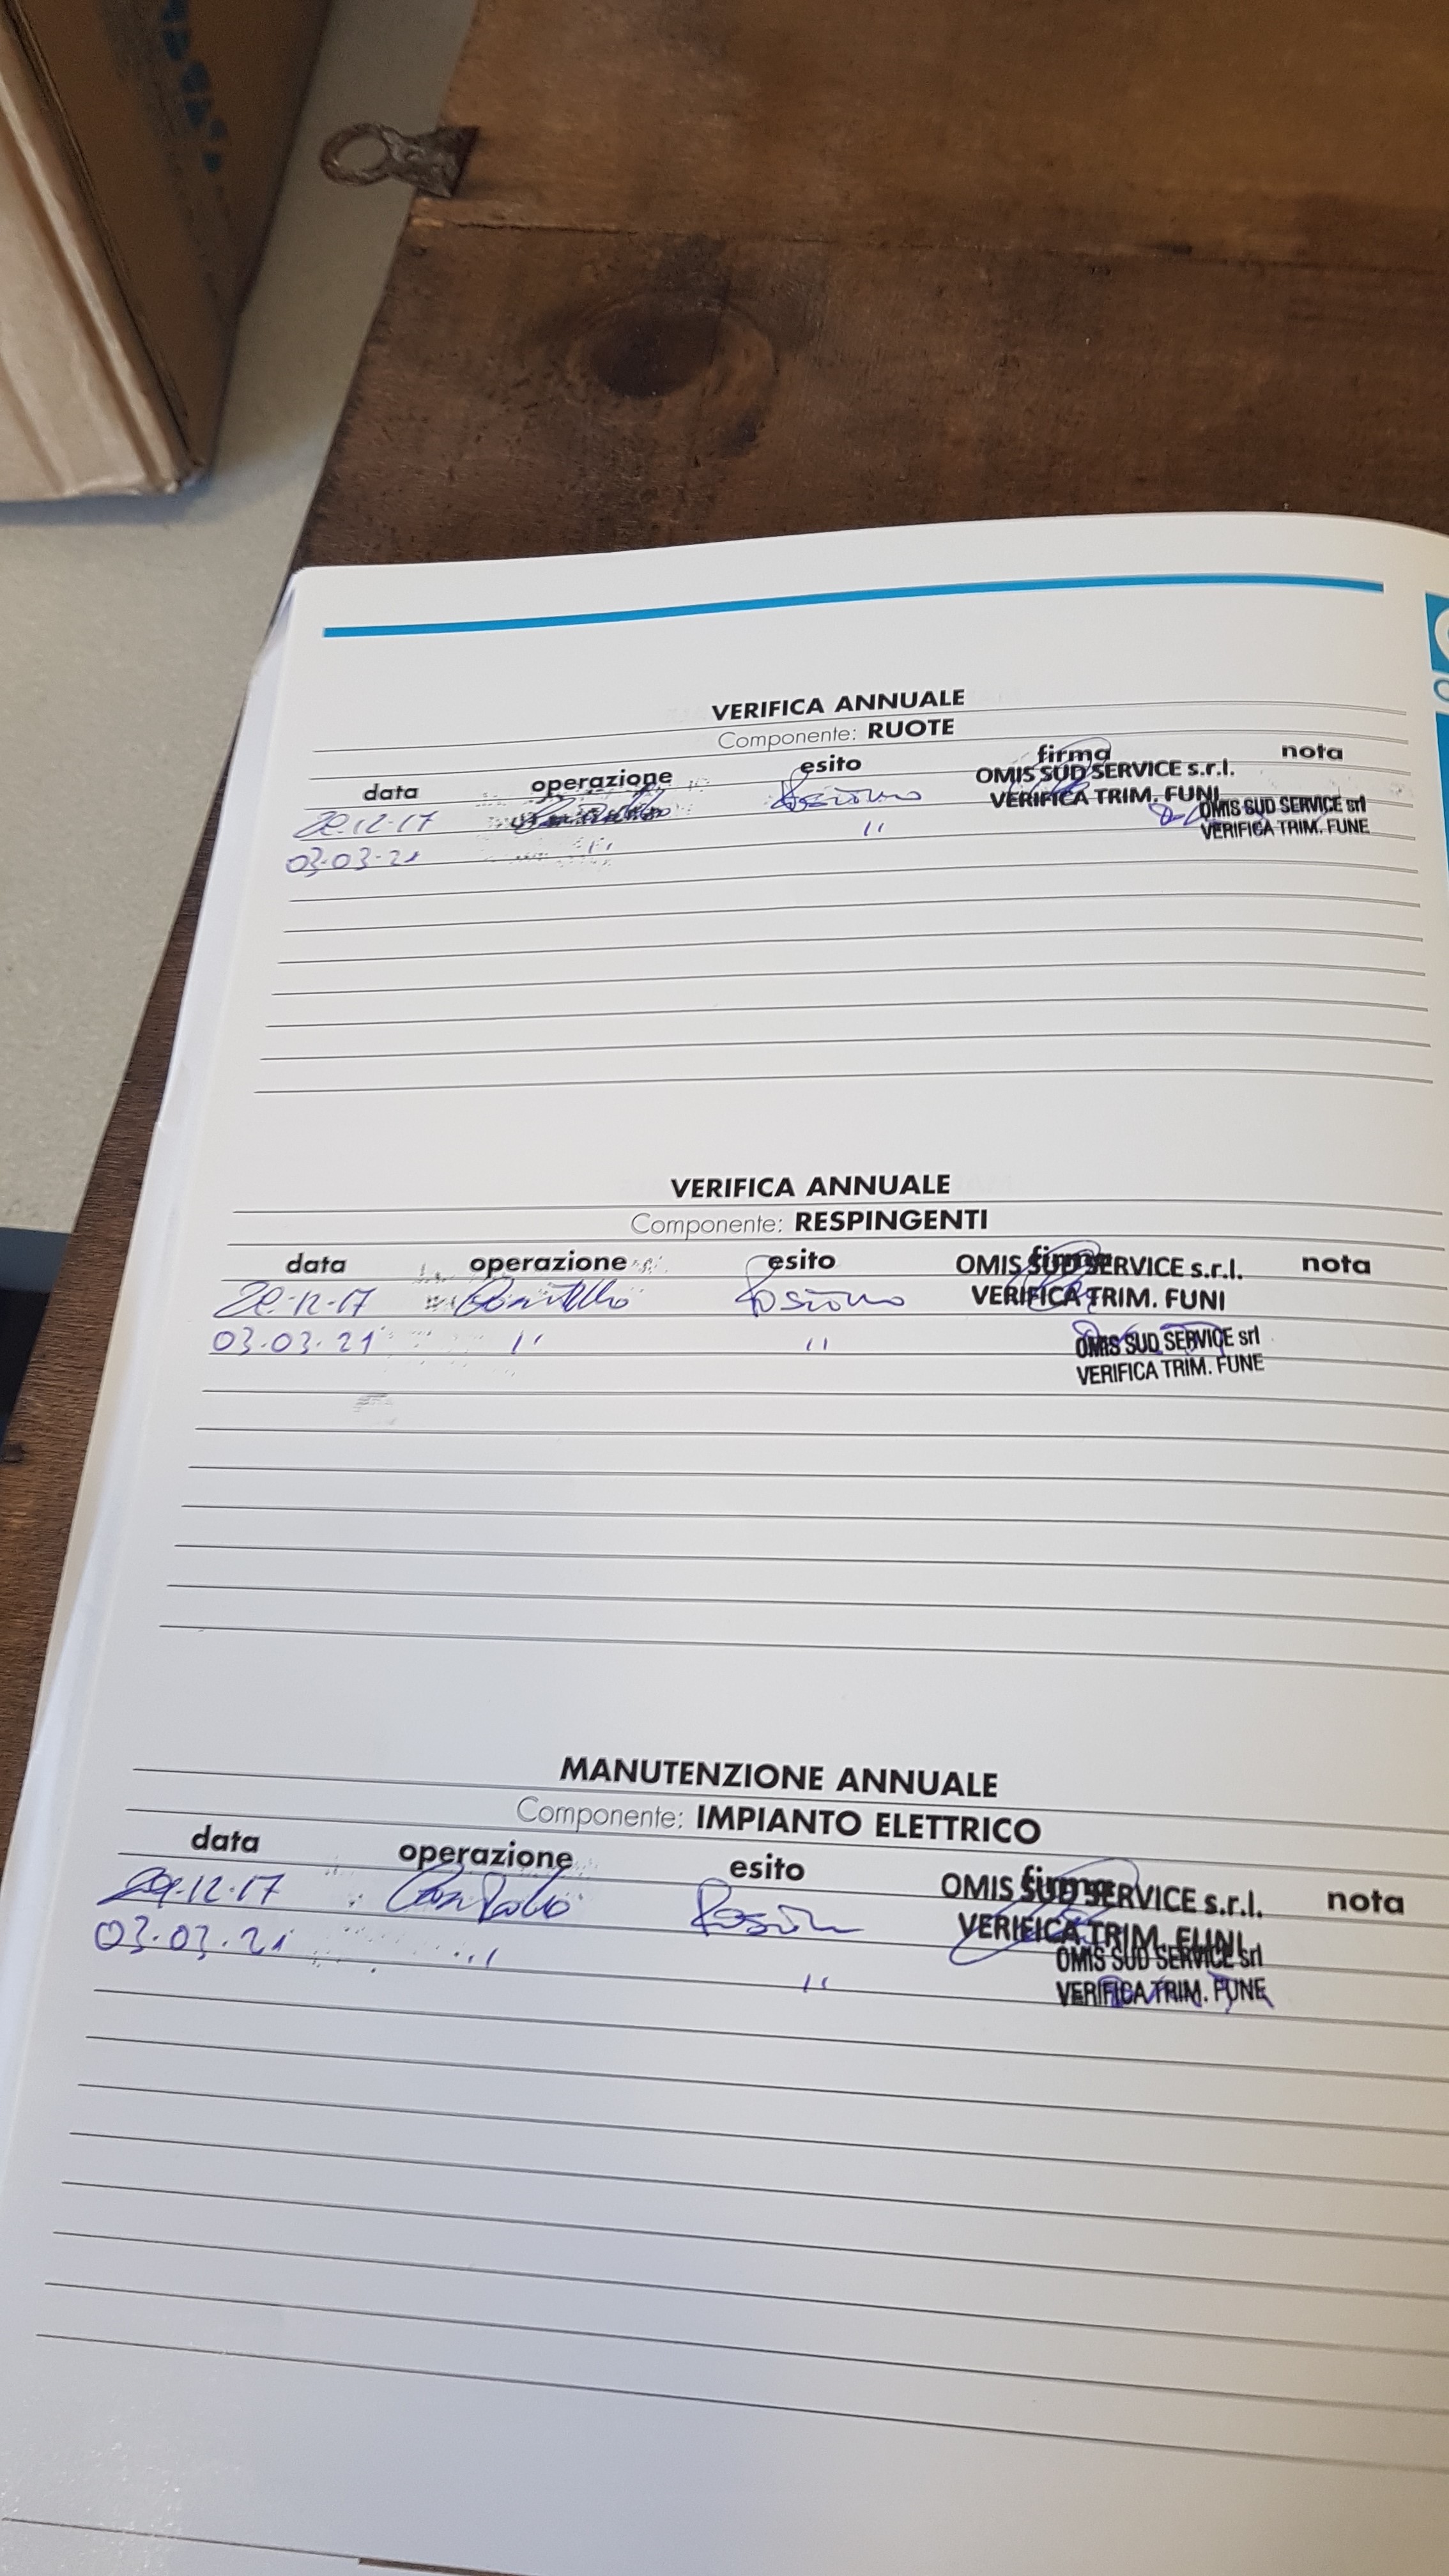 VERIFICA ANNUALE
Componente: RUOTE
data operazione esito firma nota
OMIS SUD SERVICE s.r.l.
VERIFICA TRIM. FUNI
OMIS SUD SERVICE srl
VERIFICA TRIM. FUNE
03.03.21 " "
VERIFICA ANNUALE
Componente: RESPINGENTI
data operazione esito firma nota
OMIS SUD SERVICE s.r.l.
VERIFICA TRIM. FUNI
03.03.21 " "
OMIS SUD SERVICE srl
VERIFICA TRIM. FUNE
MANUTENZIONE ANNUALE
Componente: IMPIANTO ELETTRICO
data operazione esito firma nota
OMIS SUD SERVICE s.r.l.
VERIFICA TRIM. FUNI
03.03.21 " "
OMIS SUD SERVICE srl
VERIFICA TRIM. FUNE